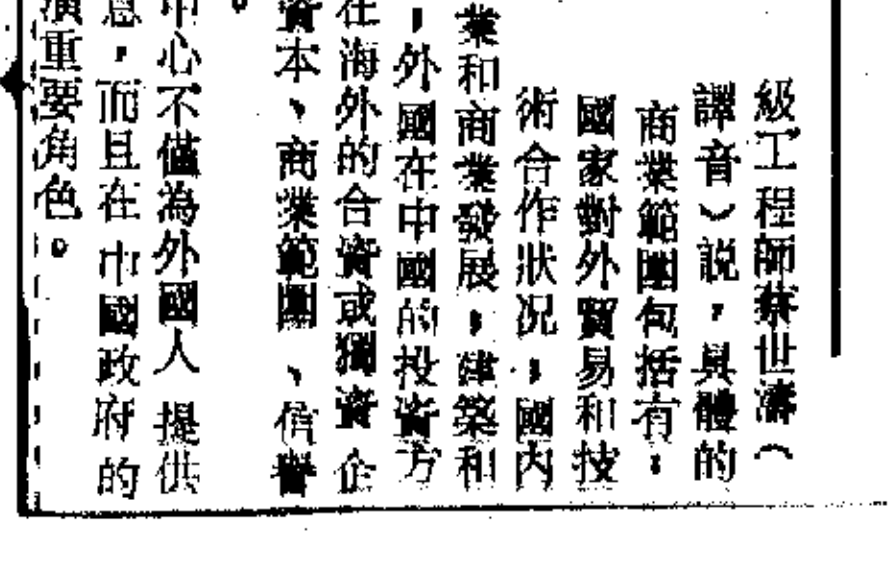 級工程師蔡世濤（
譯音）説，具體的
商業範圍包括有：
國家對外貿易和技
術合作狀况；國内
業和商業發展；建築和
，外國在中國的投資方
在海外的合資或獨資企
資本、商業範圍、信譽
。
中心不僅為外國人提供
息，而且在中國政府的
演重要角色。